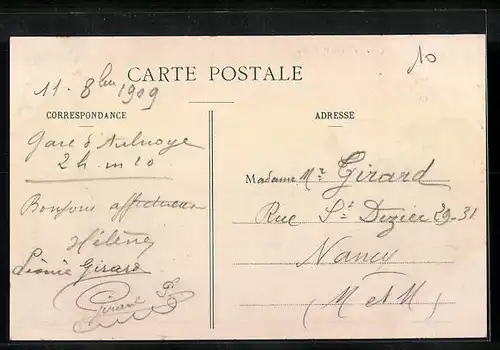 10
11 - 8bre 1909
CARTE POSTALE
CORRESPONDANCE
Gare d'Aulnoye
2h. m 10
Bonjour affectueux
Hélène
Léonie Girard
Girard
ADRESSE
Madame Mr Girard
Rue St Dizier 29-31
Nancy
(M et M)